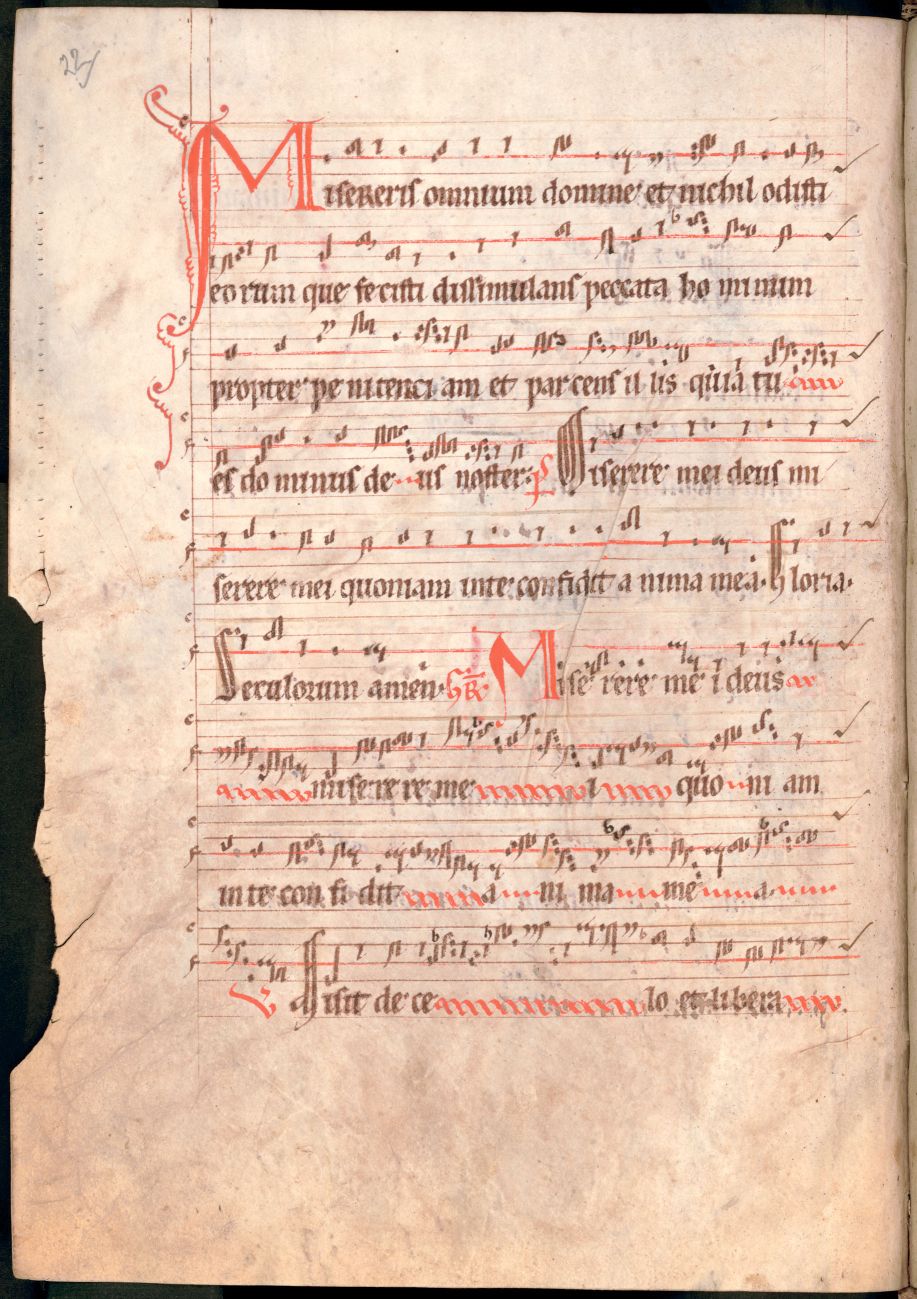 22
Misereris omnium domine et nichil odisti
eorum que fecisti dissimulans peccata ho minum
propter pe nitenci am et parcens il lis quia tu
es do minus de us noster. Ps Miserere mei deus mi
serere mei quoniam in te confidit a nima mea. Gloria.
Seculorum amen. Gr. Mise rere me i deus
miserere re me i quo ni am
in te con fi dit a ni ma me a
V Misit de ce lo et libera